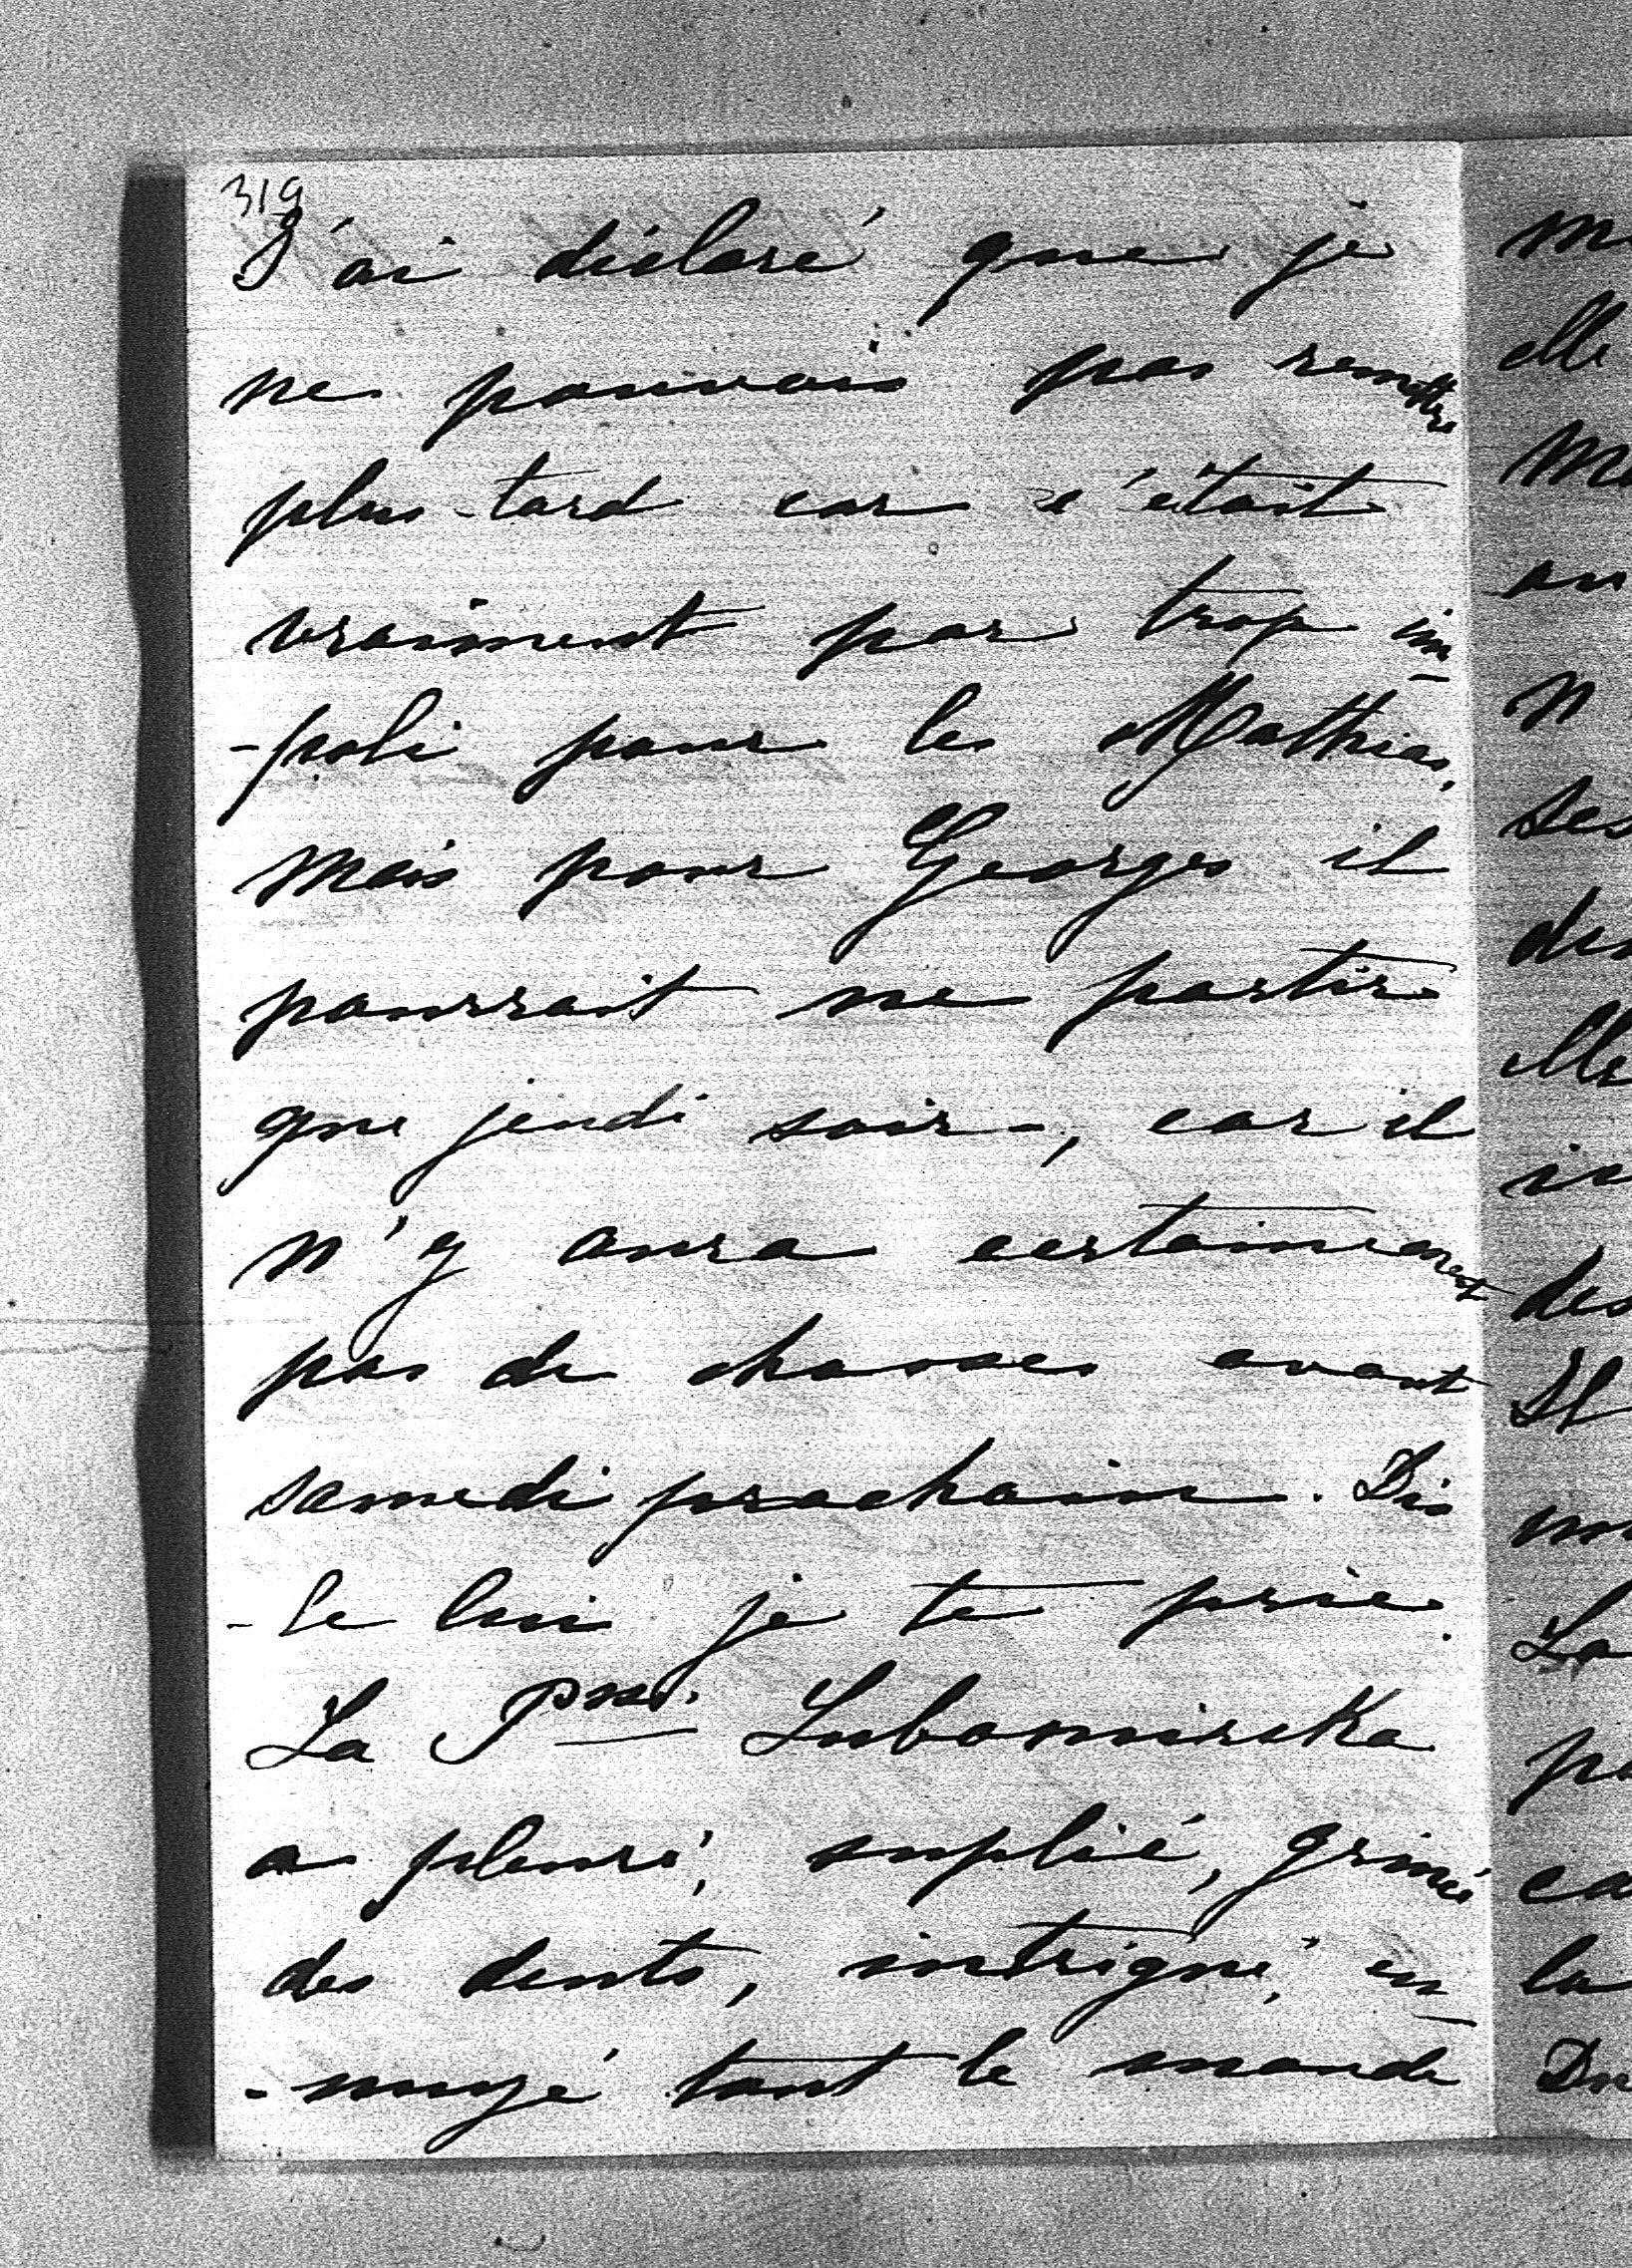 319
J'ai déclaré que je
ne pouvais pas remettre
plus tard car c'était
vraiment par trop im
-poli pour les Mathias,
mais pour Georges il
pourrait ne partir
que jeudi soir -, car il
n'y aura certainement
pas de chasses avant
samedi prochain. Dis
-le lui je te prie.
La Psse. Lubomirska
a pleuré, suplié, grincé
des dents, intrigué, en
-nuyé tout le monde
elle
ses
elle
des
Il
La
la